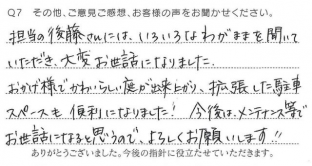 Q7 その他、ご意見ご感想、お客様の声をお聞かせください。
担当の後藤さんには、いろいろなわがままを聞いて
いただき、大変お世話になりました。
おかげ様でかわいらしい庭が出来上がり、拡張した駐車
スペースも便利になりました! 今後は、メンテナンス等で
お世話になると思うので、よろしくお願いします!!
ありがとうございました。今後の指針に役立たせていただきます。